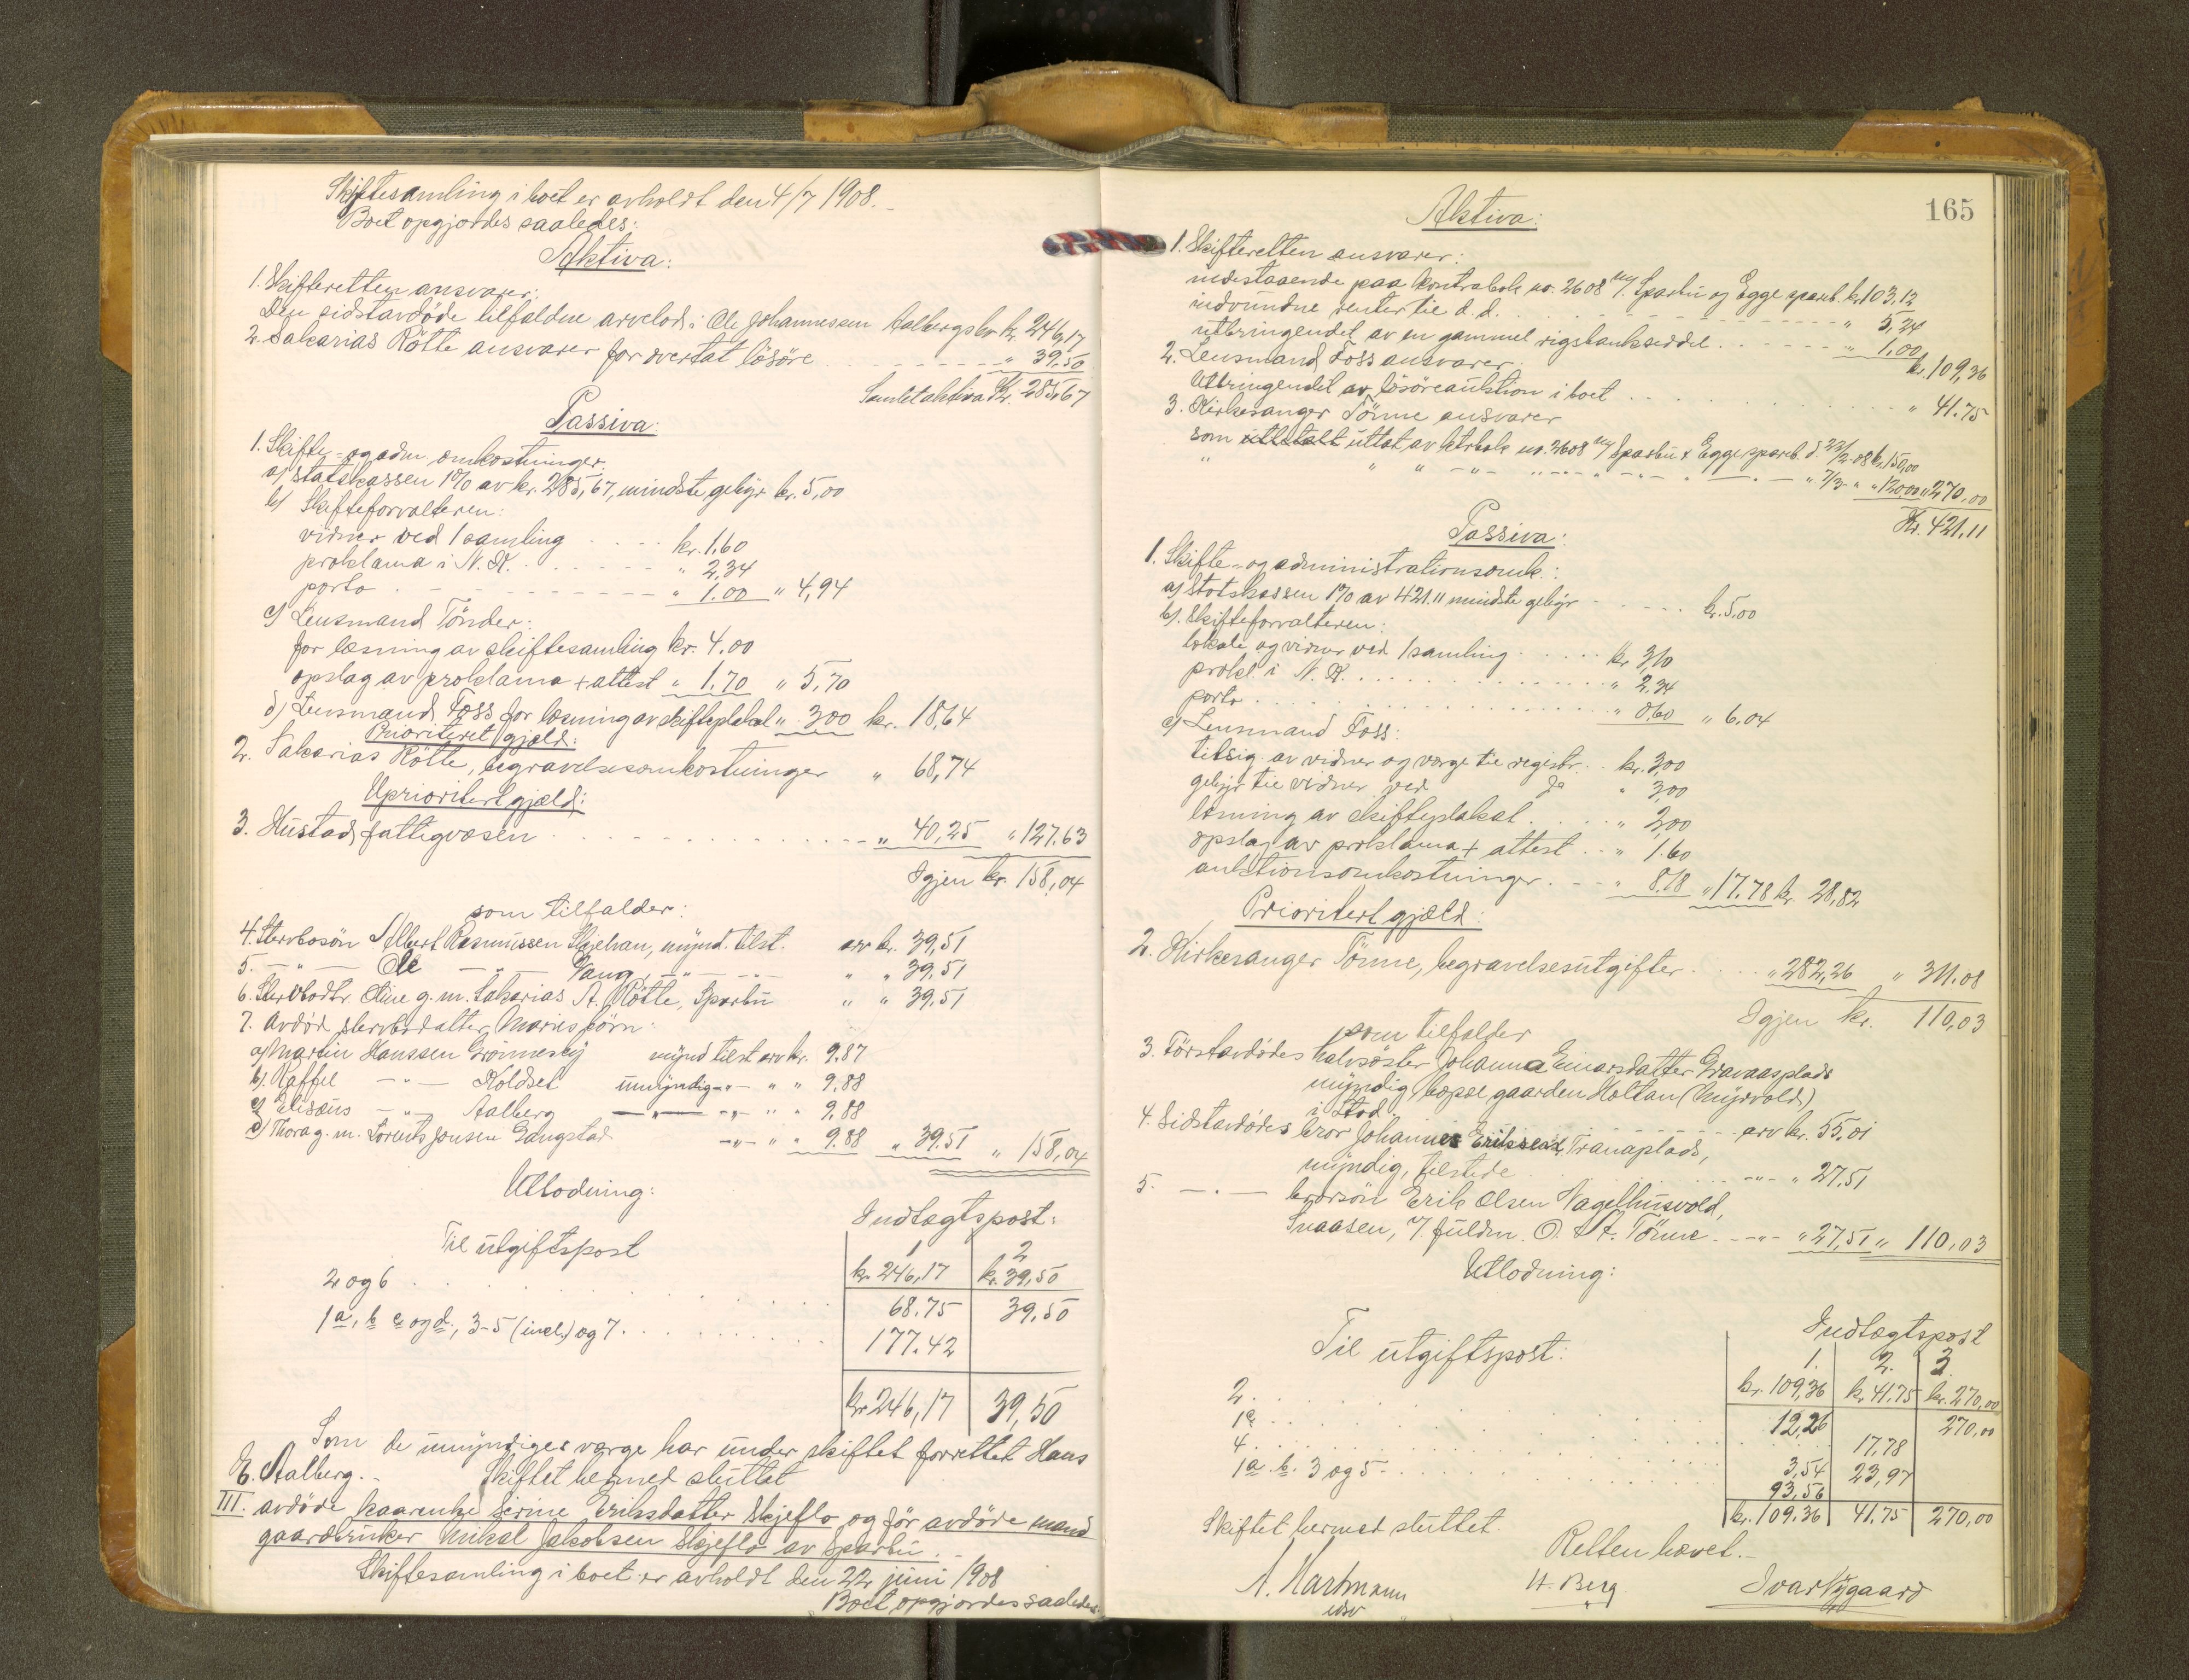 Skiftesamling i boet er avholdt den 4/7 1908.
Boet opgjordes saaledes:
Aktiva:
1. Skifteretten ansvarer:
Den sidstavdöde tilfaldne arvelod i Ole Johannessen Aalbergsbo kr. 246,17
2. Sakarias Rötte ansvarer for overtat lösöre " 39,50
Samlet aktiva Kr. 285,67
Passiva:
1. Skifte- og adm. omkostninger:
a) Statskassen 1% av kr. 285,67, mindste gebyr kr. 5,00
b) Skifteforvalteren:
vidner ved 1 samling kr. 1,60
proklama i N. K. " 2,34
porto " 1.00 " 4,94
c) Lensmand Tönder:
for læsning av skiftesamling kr. 4.00
opslag av proklama + attest " 1.70 " 5,70
d) Lensmand Foss for læsning av skifteplakat " 3.00 kr. 18,64
Prioritert gjæld:
2. Sakarias Rötte, begravelsesomkostninger " 68,74
Uprioritert gjæld:
3. Hustad fattigvæsen " 40,25 " 127.63
Igjen kr. 158,04
som tilfalder:
4. Stervbosön Albert Rasmussen Skjehan, mynd. tilst. arv kr. 39,51
5. — " — Ole — " — Vang, — " — " " 39,51
6. Stervbodtr. Oline g. m. Sakarias A. Rötte, Sparbu " " 39,51
7. Avdöd stervbodatter Maries börn:
a) Martin Hanssen Grönnesby mynd tilst arv kr. 9.87
b) Raffel — " — Koldset umyndig — " — " " 9.88
c) Elisæus — " — Aalberg — " — — " — " " 9.88
d) Thora g. m. Lorents Jonsen Gangstad — " — " " 9.88 " 39.51 " 158,04
Utlodning:
Indtægtspost:
Til utgiftspost 1 2
kr. 246,17 kr. 39,50
2 og 6 68.75 39,50
1a, b c og d., 3-5 (incl.) og 7. 177.42
kr 246,17 39,50
Som de umyndiges værge har under skiftet forrettet Hans
E. Aalberg.- Skiftet hermed sluttet
III. avdöde kaarenke Serine Eriksdatter Skjeflo og för avdöde mand
gaardbruker Mikal Jakobsen Skjeflo av Sparbu.
Skiftesamling i boet er avholdt den 22 juni 1908
Boet opgjordes saaledes:
165
Aktiva:
1. Skifteretten ansvarer:
indestaaende paa kontrabok no. 2608 Sparbu og Egge spareb. kr. 103,12
indvundne renter til d. d. " 5,24
utbringendet av en gammel rigsbankseddel " 1.00 kr. 109,36
2. Lensmand Foss ansvarer
Utbringendet av lösöreauktion i boet " 41.75
3. Kirkesanger Tönne ansvarer
som uttat av ktrbok no. 2608 Sparbu & Egge spareb. d. 22/2-08 kr. 150,00
" " " — " — " — " — " — " 7/3 - " " 120,00 " 270,00
Kr. 421.11
Passiva:
1. Skifte- og administrationsomk.:
a) Statskassen 1% av 421.11 mindste gebyr kr. 5.00
b). Skifteforvalteren:
lokale og vidner ved 1 samling kr 3,10
prokl i N. K. " 2,34
porto " 0.60 " 6.04
c) Lensmand Foss:
tilsig. av vidner og værge til registr. kr. 3,00
gebyr til vidner ved do " 3,00
læsning av skifteplakat " 2,00
opslag av proklama + attest " 1.60
auktionsomkostninger " 8.18 " 17.78 kr. 28,82
Prioritert gjæld:
2. Kirkesanger Tönne, begravelsesutgifter " 282,26 " 311.08
Igjen kr. 110,03
som tilfalder
3. Förstavdödes halvsöster Johanna Einarsdatter Gravaasplads
myndig bopæl gaarden Holtan (Myrvold)
i Stod arv kr. 55,01
4. Sidstavdödes bror Johannes Erikssen, Tranaplads,
myndig, tilstede — " — " 27,51
5. — " — brorsön Erik Olsen Vagelhusvold,
Snaasen, v/ fuldm. O. A. Tönne — " — " 27,51 " 110,03
Utlodning:
Indtægtspost
Til utgiftspost: 1. 2. 3
kr. 109,36 kr 41.75 kr. 270,00
2. 12,26 270,00
1c. 17.78
4. 3,54 23,97
1a. b. 3 og 5 93,56
kr. 109.36 41.75 270,00
Skiftet hermed sluttet.
Retten hævet.-
A. Hartmann H. Berg Ivar Nygaard
edsv